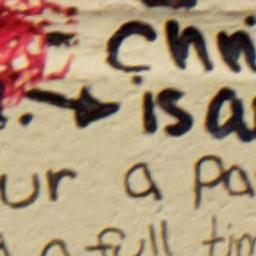 - Chni
. → isa
ur a pa
a full tim